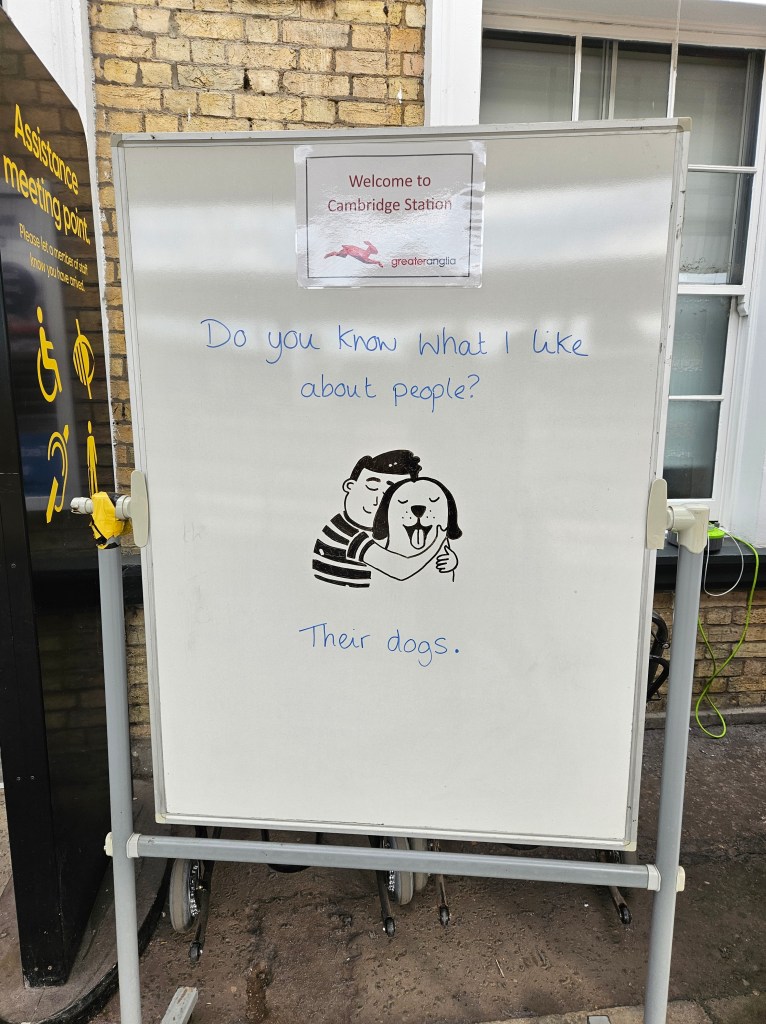 Assistance
meeting point.
Please let a member of staff
know you have arrived.
Welcome to
Cambridge Station
greateranglia
Do you know what I like
about people?
Their dogs.